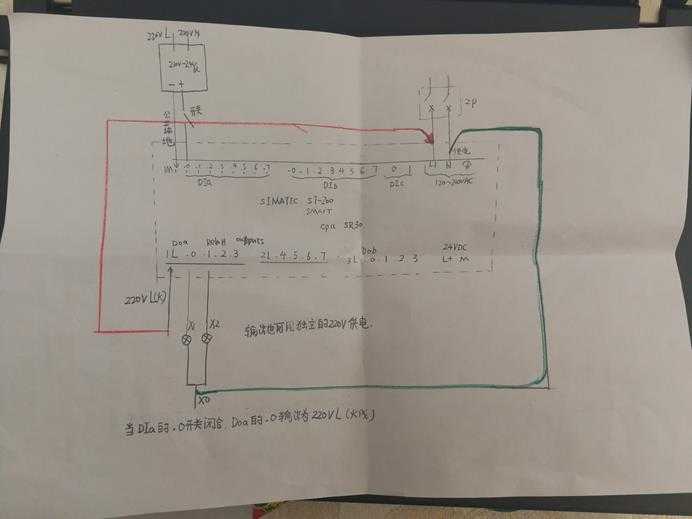 220V L 220V N
220V-24V
- +
开关
公共接地
2P
供电
1M .0 .1 .2 .3 .4 .5 .6 .7
.0 .1 .2 .3 .4 .5 .6 .7
.0 .1
L1 N
DIa
DIb
DIc
120~240VAC
SIMATIC S7-200
SMART
cpu SR30
Doa
outputs
Dob
24VDC
1L .0 .1 .2 .3
2L .4 .5 .6 .7
3L .0 .1 .2 .3
L+ M
220V L(火)
X1
X2
输出也可用独立的220V供电.
X0
当DIa的.0开关闭合, Doa的.0输出为220V L (火线)